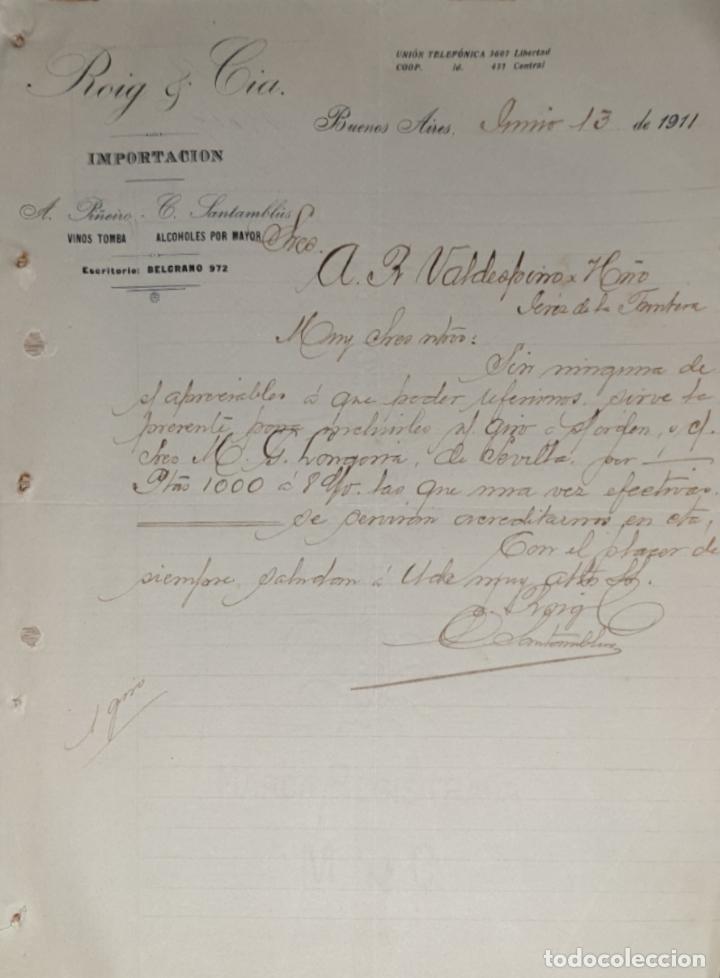 Roig & Cia.
UNIÓN TELEFÓNICA 3607 Libertad
COOP. id. 431 Central
Buenos Aires, Junio 13 de 1911
IMPORTACION
A. Piñeiro - C. Santamblús
VINOS TOMBA ALCOHOLES POR MAYOR
Escritorio: BELGRANO 972
Sres.
A. R. Valdespino y Hño
Jerez de la Frontera
Muy Sres ntros:
Sin ninguna de
s/ apreciables á que poder referirnos, sirve la
presente para incluirles s/ giro o s/orden, c/
Sres M. G. Longoria, de Sevilla por
Ptas 1000 á 8 d/v. las que una vez efectivas,
se servirán acreditarnos en cta,
Con el placer de
siempre, saludan á Uds muy atto SS.
Roig C
C Santamblús
1 giro
todocoleccion